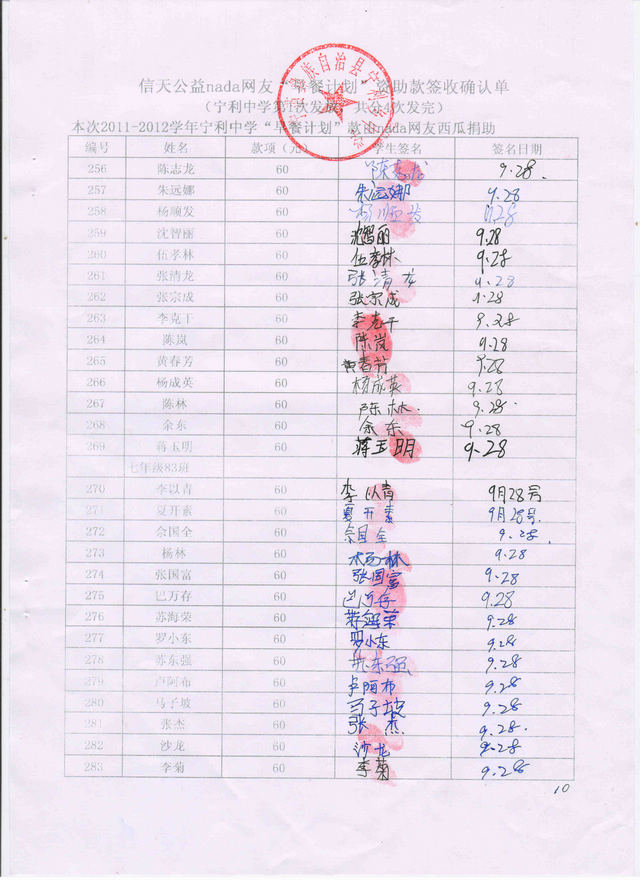 信天公益nada网友“早餐计划”资助款签收确认单
（宁利中学第1次发放，共分4次发完）
本次2011-2012学年宁利中学“早餐计划”款由nada网友西瓜捐助
编号 姓名 款项（元） 学生签名 签名日期
256 陈志龙 60 陈志龙 9.28.
257 朱远娜 60 朱远娜 9.28
258 杨顺发 60 杨顺发 9.28
259 沈智丽 60 沈智丽 9.28
260 伍孝林 60 伍孝林 9.28
261 张清龙 60 张清龙 9.28
262 张宗成 60 张宗成 9.28
263 李克干 60 李克干 9.28
264 陈岚 60 陈岚 9.28
265 黄春芳 60 黄春芳 9.28
266 杨成英 60 杨成英 9.28
267 陈林 60 陈林. 9.28.
268 余东 60 余东 9.28
269 蒋玉明 60 蒋玉明 9.28
七年级83班
270 李以青 60 李以青 9月28号
271 夏开素 60 夏开素 9月28号.
272 佘国全 60 佘国全 9.28.
273 杨林 60 杨林 9.28
274 张国富 60 张国富 9.28
275 巴万存 60 9.28
276 苏海荣 60 苏海荣 9.28
277 罗小东 60 罗小东 9.28
278 苏东强 60 苏东强 9.28
279 卢阿布 60 卢阿布 9.28
280 马子坡 60 马子坡 9.28
281 张杰 60 张杰 9.28.
282 沙龙 60 沙龙 9.28
283 李菊 60 李菊 9.28
10